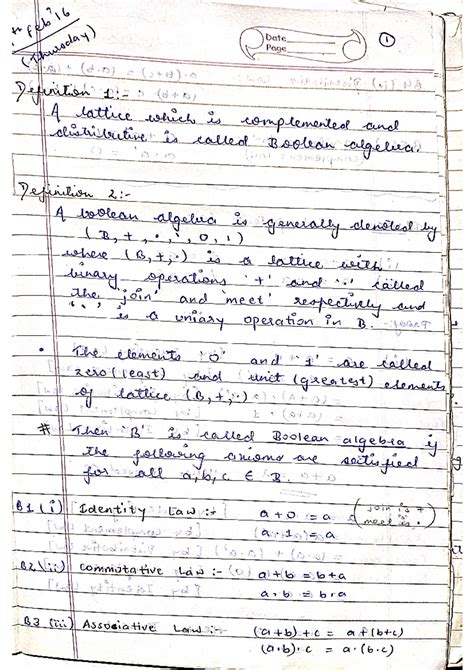 Feb '16
(Thursday)
Date
Page
1
Definition 1:-
A lattice which is complemented and
distributive is called Boolean algebra.
Definition 2:-
A boolean algebra is generally denoted by
(B, +, ., ', 0, 1)
where (B, +, .) is a lattice with
binary operations '+' and '.' called
the 'join' and 'meet' respectively and
''' is a uniary operation in B.
• The elements '0' and '1' are called
zero (least) and unit (greatest) elements
of lattice (B, +, .)
# Then 'B' is called Boolean algebra if
the following axioms are satisfied
for all a, b, c ∈ B.
B1 (i) Identity Law :- a + 0 = a (join is +
a . 1 = a meet is .)
B2 (ii) Commutative Law :- a + b = b + a
a . b = b . a
B3 (iii) Associative Law :- (a+b)+c = a+(b+c)
(a.b).c = a.(b.c)